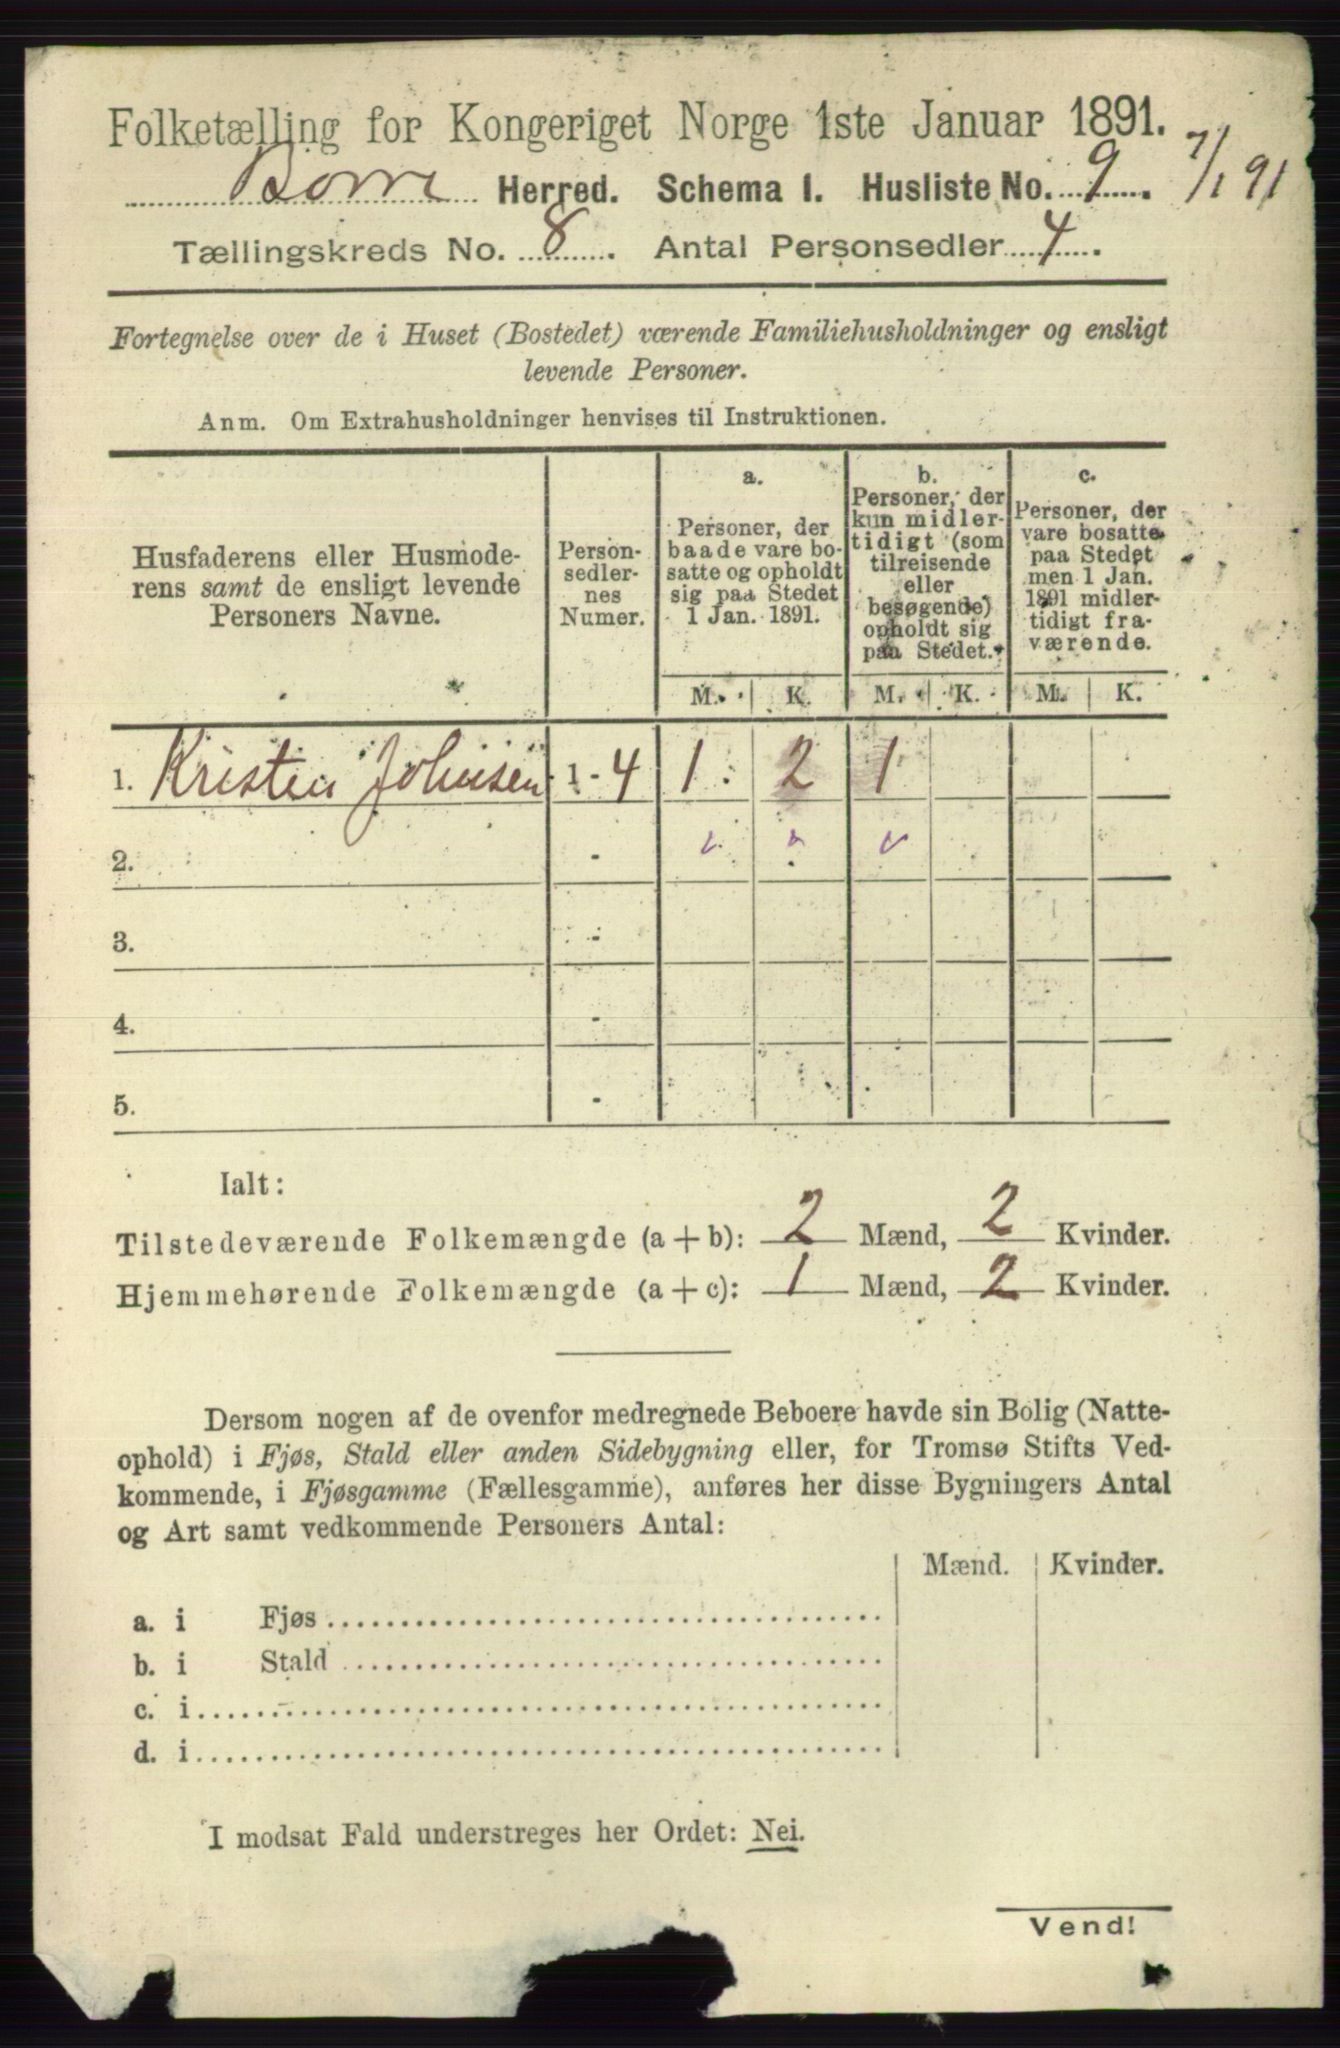 Folketælling for Kongeriget Norge 1ste Januar 1891.
Borre Herred. Schema I. Husliste No. 9. 7/1 91
Tællingskreds No. 8. Antal Personsedler 4.
Fortegnelse over de i Huset (Bostedet) værende Familiehusholdninger og ensligt
levende Personer.
Anm. Om Extrahusholdninger henvises til Instruktionen.
Husfaderens eller Husmode-
rens samt de ensligt levende
Personers Navne.
Person-
sedler-
nes
Numer.
a.
Personer, der
baade vare bo-
satte og opholdt
sig paa Stedet
1 Jan. 1891.
b.
Personer, der
kun midler-
tidigt (som
tilreisende
eller
besøgende)
opholdt sig
paa Stedet.
c.
Personer, der
vare bosatte
paa Stedet
men 1 Jan.
1891 midler-
tidigt fra-
værende.
M. K. M. K. M. K.
1. Kristen Johnsen 1 - 4 1 2 1
2. -
3. -
4. -
5. -
Ialt:
Tilstedeværende Folkemængde (a + b): 2 Mænd, 2 Kvinder.
Hjemmehørende Folkemængde (a + c): 1 Mænd, 2 Kvinder.
Dersom nogen af de ovenfor medregnede Beboere havde sin Bolig (Natte-
ophold) i Fjøs, Stald eller anden Sidebygning eller, for Tromsø Stifts Ved-
kommende, i Fjøsgamme (Fællesgamme), anføres her disse Bygningers Antal
og Art samt vedkommende Personers Antal:
Mænd. Kvinder.
a. i Fjøs
b. i Stald
c. i
d. i
I modsat Fald understreges her Ordet: Nei.
Vend!